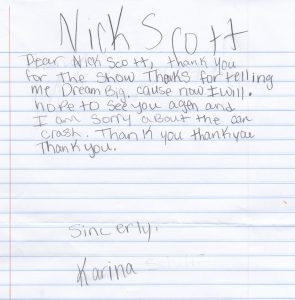 Nick Scott
Dear Nick Scott, thank you
for The show Thanks for telling
me Dream Big. cause now I will.
hope to see you agen and
I am sorry about the car
crash. Thank you thank you
Thank you.
Sincerly,
Karina